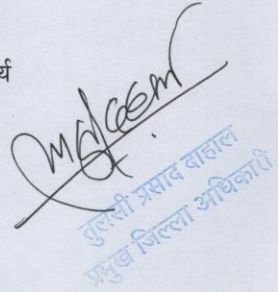 र्य
तुलसी प्रसाद दाहाल
प्रमुख जिल्ला अधिकारी